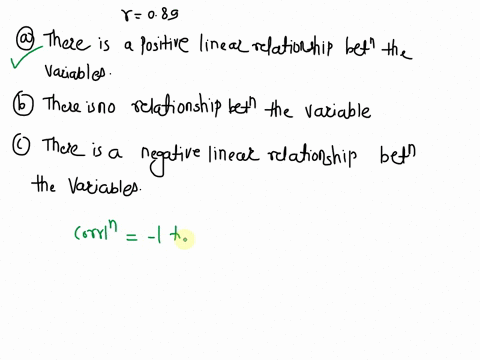 r = 0.89
(a) There is a positive linear relationship betn the
variables.
(b) There is no relationship betn the variable
(c) There is a negative linear relationship betn
the variables.
corrn = -1 t